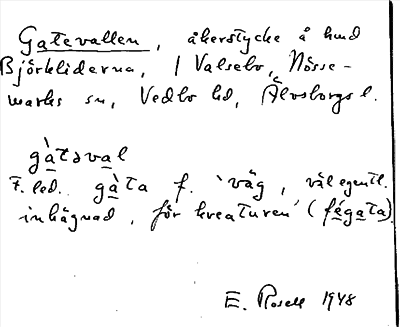 Gatevallen, åkerstycke å hmd
Björkliderna, / Valsebo, Nösse-
marks sn, Vedbo hd, Älvsborgs l.
gàtəval
F. led. gàta f. 'väg, väl egentl.
inhägnad, för kreaturen' (fégata)
E. Rosell 1948